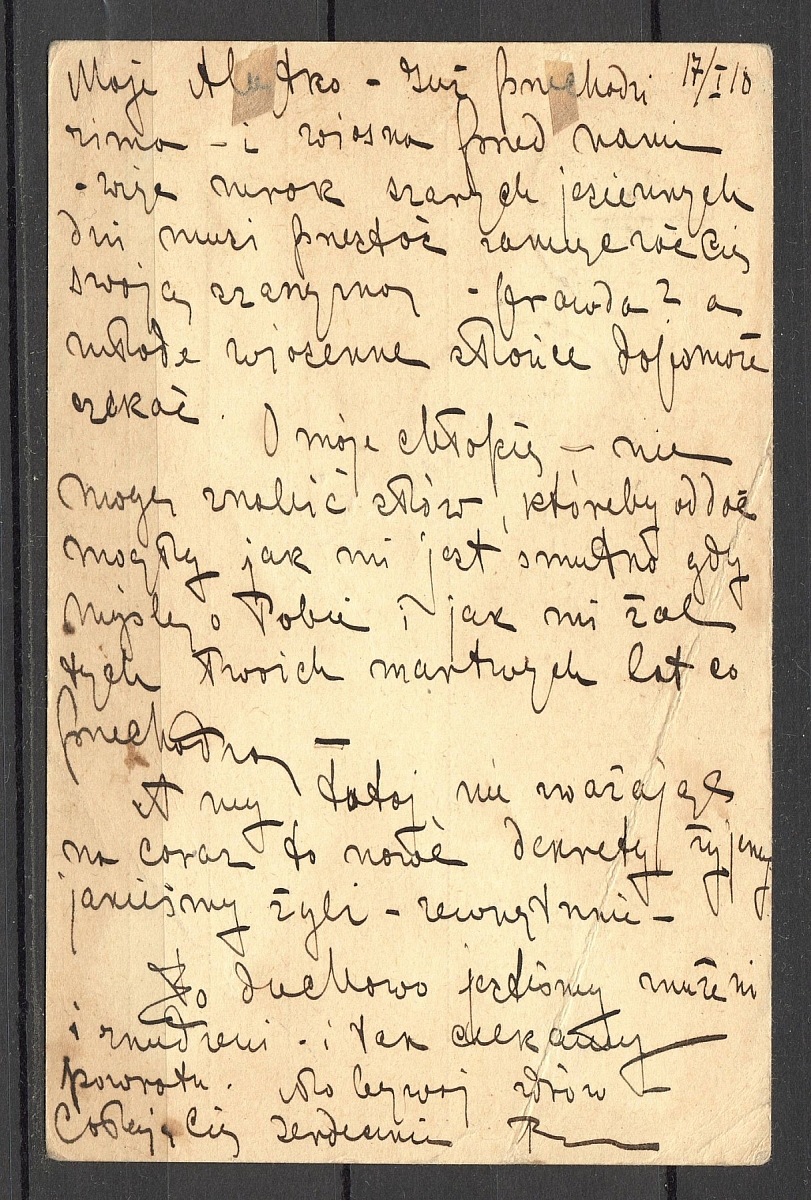 Moje - Już przechodzi 17/I 18
zima - i wiosna przed nami
- więc mrok szarych jesiennych
dni musi przestać zamęczać Cię
swoją szarzyzną - prawda? a
młode wiosenne słońce dopomoże
czekać. O moje chłopię - nie
mogę znaleść słów, któreby oddać
mogły jak mi jest smutno gdy
myślę o Tobie i jak mi żal
tych Twoich martwych lat co
przechodzą -
A my tutaj nie zważając
na coraz to nowe dekrety żyjemy
jakieśmy żyli - zewnętrznie -
bo duchowo jesteśmy znużeni
i znudzeni - i tak czekamy
powrotu. No bywaj zdrów -
Całuję Cię serdecznie